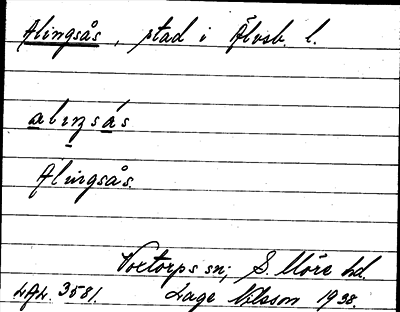 Alingsås, stad i Älvsb. l.
alıŋsás
Alingsås.
Voxtorps sn; S. Möre hd.
LAL. 3581. Lage Nilsson 1938.